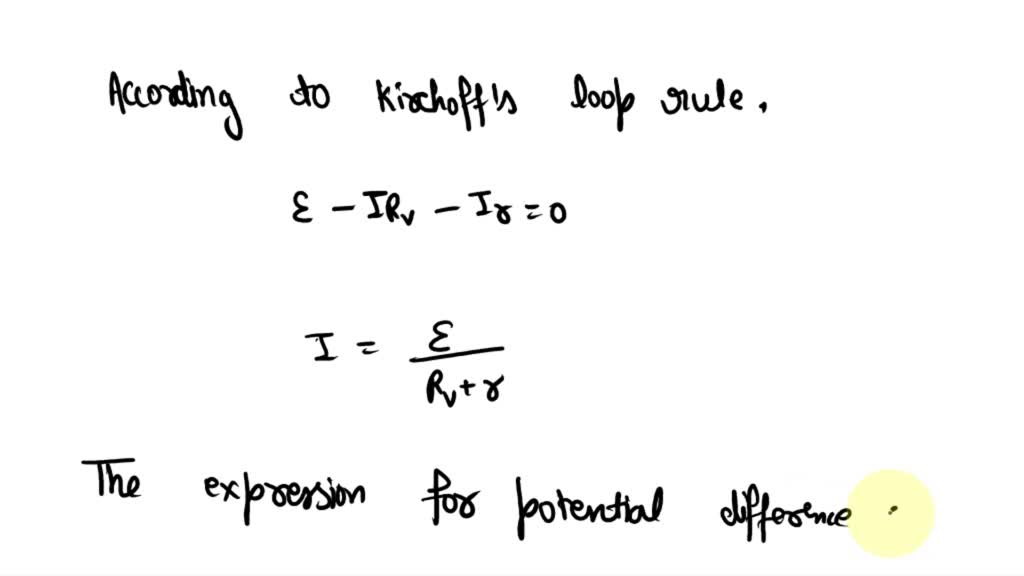 According to Kirchoff's loop rule.
ε - IRv - Ir = 0
I = ε / Rv + r
The expression for potential difference